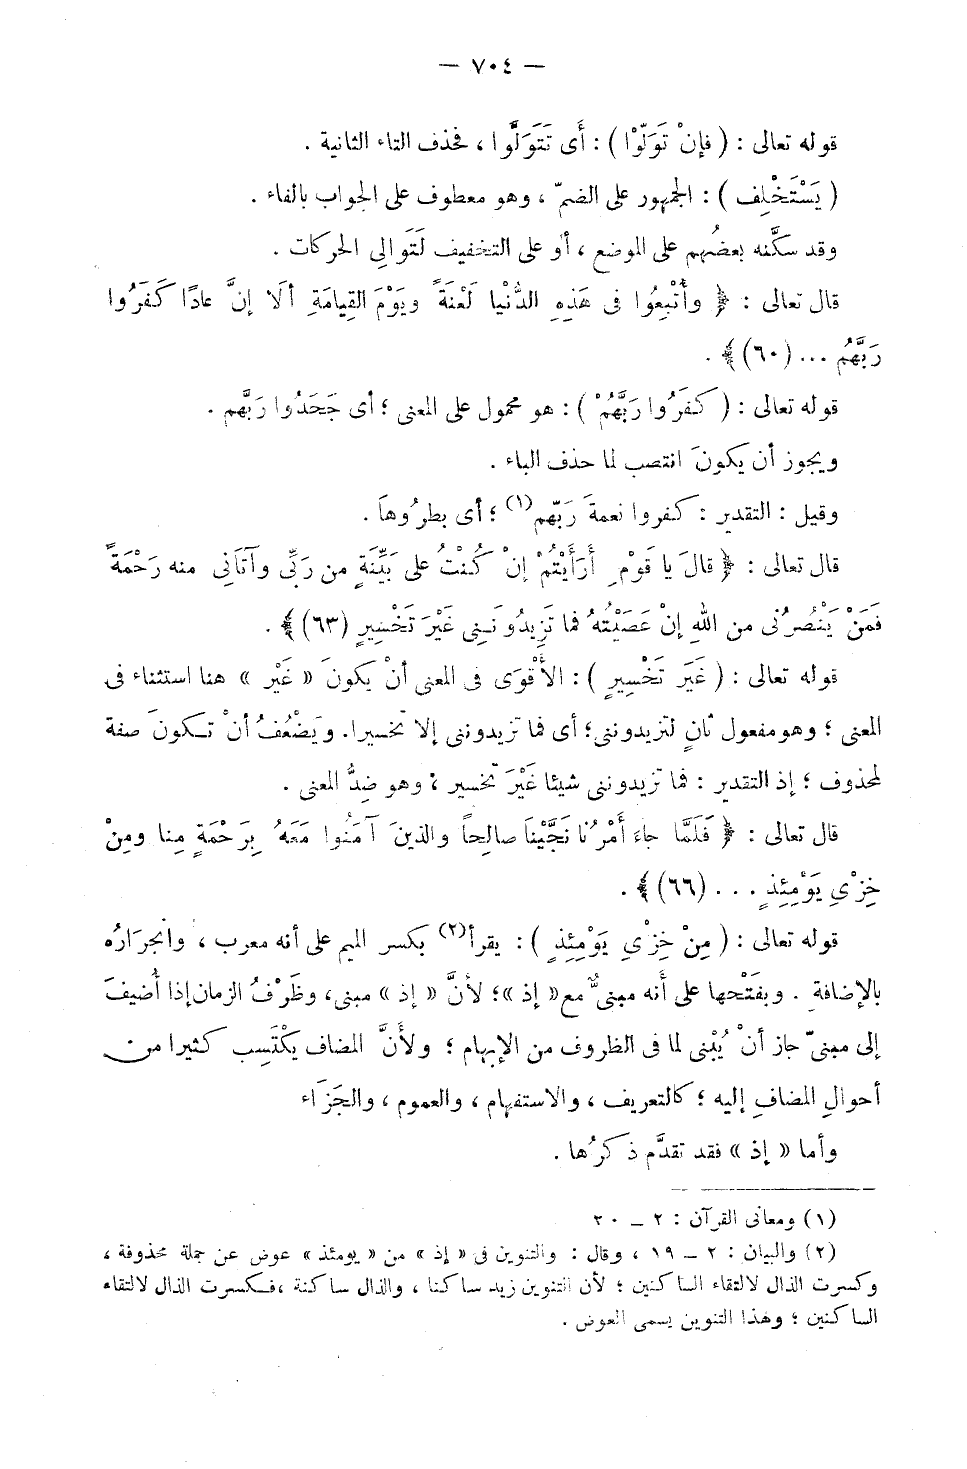 — ٧٠٤ —
قوله تعالى : ( فإنْ تَوَلَّوْا ) : أَى تَتَوَلَّوا ، فحُذف التاء الثانية .
( يَسْتَخْلِف ) : الجمهور على الضمّ ، وهو معطوف على الجواب بالفاء .
وقد سكَّنه بعضُهم على الموضع ، أو على التخفيف لَتَوَالِى الحركات .
قال تعالى : ﴿ وأُتْبِعُوا فى هَذِهِ الدُّنْيا لَعْنَةً ويَوْمَ القِيامَةِ ألَا إنَّ عادًا كَفَرُوا
رَبَّهُم ... (٦٠) ﴾ .
قوله تعالى : ( كَفَرُوا رَبَّهُمْ ) : هو محمول على المعنى ؛ أى جَحَدُوا رَبَّهم .
ويجوز أن يكونَ انتصب لما حذف الباء .
وقيل : التقدير : كفروا نعمةَ رَبّهم(١) ؛ أى بطرُوها .
قال تعالى : ﴿ قالَ يا قَوْمِ أَرَأَيْتُمْ إنْ كُنْتُ على بَيِّنَةٍ من رَبِّى وآتَانِى منه رَحْمَةً
فَمَنْ يَنْصُرُنى من اللهِ إنْ عَصَيْتُهُ فما تَزِيدُونَنِى غَيْرَ تَخْسِيرٍ (٦٣) ﴾ .
قوله تعالى : ( غَيَر تَخْسِيرٍ ) : الأَقْوَى فى المعنى أنْ يكونَ « غَيْر » هنا استثناء فى
المعنى ؛ وهو مفعول ثانٍ لتزيدوننى ؛ أى فما تزيدوننى إلا تَخسيرا. ويَضْعُفُ أنْ تكونَ صفة
لمحذوف ؛ إذ التقدير : فما تزيدوننى شيئا غَيْرَ تَخسير ؛ وهو ضِدُّ المعنى .
قال تعالى : ﴿ فَلَمَّا جاءَ أَمْرُنا نَجَّيْنا صالِحاً والذينَ آمَنُوا مَعَهُ بِرَحْمَةٍ مِنا ومِنْ
خِزْىِ يَوْمِئِذٍ . . . (٦٦) ﴾ .
قوله تعالى : ( مِنْ خِزْىِ يَوْمِئِذٍ ) : يقرأ(٢) بكسر الميم على أنه معرب ، وانْجِرَارُه
بالإضافة . وبفَتْحها على أَنه مبنىٌّ مع « إذ » ؛ لأنَّ « إذ » مبنى، وظَرْفُ الزمان إذا أُضيفَ
إلى مبنىّ جاز أنْ يُبْنى لما فى الظروف من الإبهام ؛ ولأَنَّ المضاف يَكْتَسِب كثيرا من
أحوالِ المضافِ إليه ؛ كالتعريف ، والاستفهام ، والعموم ، والجَزَاء
وأما « إذ » فقد تقدَّم ذكرُها .
(١) ومعانى القرآن : ٢ – ٢٠
(٢) والبيان : ٢ – ١٩ ، وقال : والتنوين فى « إذ » من « يومئذ » عوض عن جملة محذوفة ،
وكسرت الذال لالتقاء الساكنين ؛ لأن التنوين زيد ساكنا ، والذال ساكنة ، فكسرت الذال لالتقاء
الساكنين ؛ وهذا التنوين يسمى العوض .